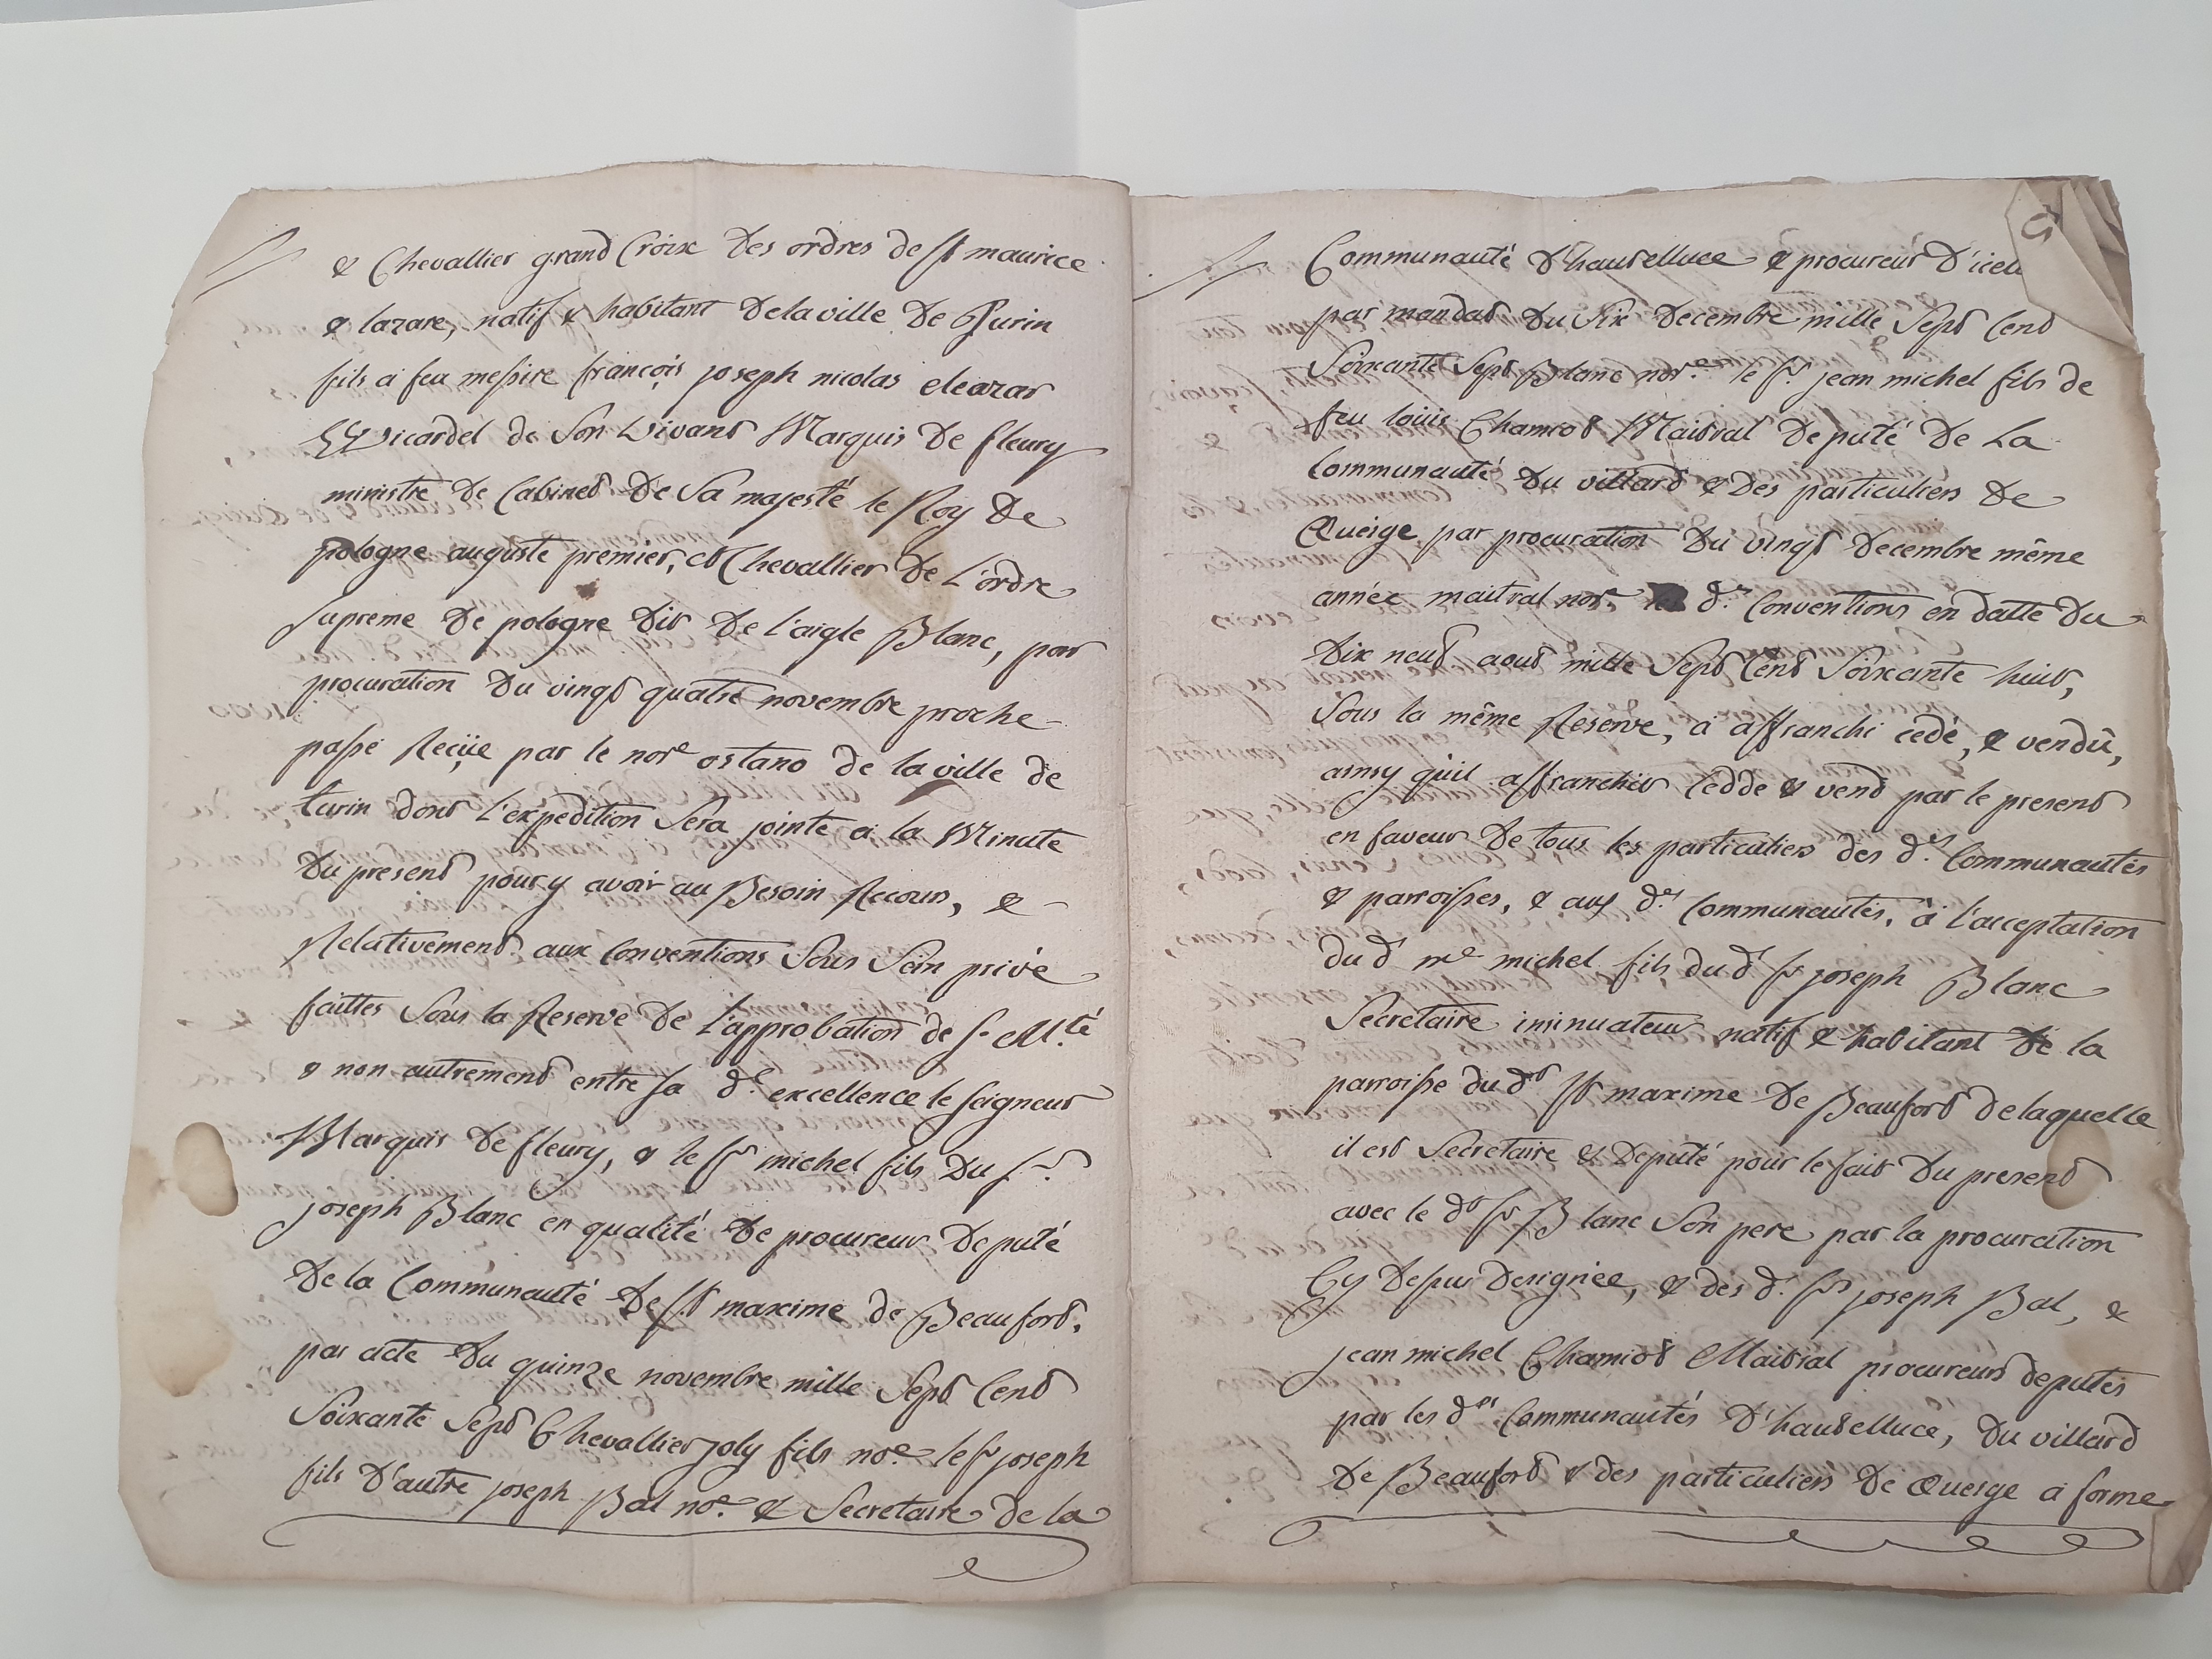 & Chevallier grand Croix des ordres de st maurice
& lazare, natif & habitant de la ville de Turin
fils a feu messire françois joseph nicolas eleazar
Wicardel de son vivant Marquis de fleury
ministre de Cabinet de Sa majesté le Roy de
pologne auguste premier, et Chevallier de L'ordre
supreme de pologne dit de l'aigle Blanc, par
procuration du vingt quatre novembre proche
passé Reçüe par le nore ostano de la ville de
turin dont l'expedition Sera jointe a la Minute
du present pour y avoir au Besoin Recours, &
Relativement aux Conventions Sous Sein privé
faittes Sous la Reserve de l'approbation de s. Mté
& non autrement entre sa de excellence le seigneur
Marquis de fleury, & le sr michel fils du sr
joseph Blanc en qualité de procureur deputé
de la Communauté de st maxime de Beaufort,
par acte du quinze novembre mille Sept Cent
Soixante Sept Chevallier joly fils nre le sr joseph
fils d'autre joseph Bal nre & Secretaire de la
5
Communauté d'hautelluce & procureur d'icell
par mandat du Six decembre mille Sept Cent
Soixante Sept Blanc notre le sr jean michel fils de
feu louis Chamiot Maitral deputé de La
Communauté du villard & des particuliers de
Queige par procuration du vingt decembre même
année maitral notre d. Conventions en datte du
dix neuf aout mille Sept Cent Soixante huit,
Sous la même Reserve, a affranchi cedé, & vendû,
ainsy qu'il affranchit Cedde & vend par le present
en faveur de tous les particuliers des des Communautés
& parroisses, & aux des Communautés, â l'acceptation
du dt me michel fils du dt sr joseph Blanc
Secretaire insinuateur natif & habitant de la
parroisse du dt st maxime de Beaufort de laquelle
il est Secretaire & deputé pour le fait du present
avec le dt sr Blanc Son pere par la procuration
Cy dessus designée, & des d. srs joseph Bal, &
jean michel Chamiot Maitral procureurs deputés
par les des Communautés d'hautelluce, du villard
de Beaufort & des particuliers de Queige a forme